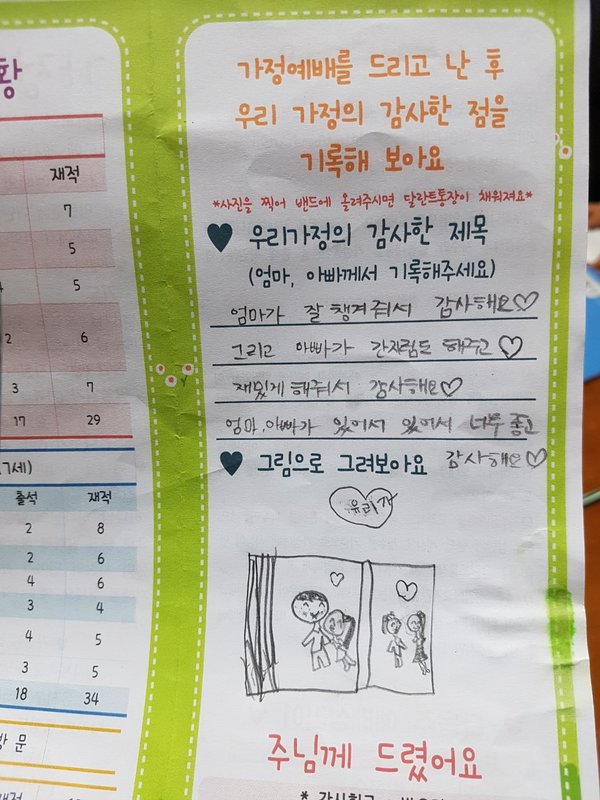 황
재적
7
5
5
2 6
3 7
17 29
7세)
출석 재적
2 8
2 6
4 6
3 4
4 5
3 5
18 34
방 문
재적
가정예배를 드리고 난 후
우리 가정의 감사한 점을
기록해 보아요
*사진을 찍어 밴드에 올려주시면 달란트통장이 채워져요*
우리가정의 감사한 제목
(엄마, 아빠께서 기록해주세요)
엄마가 잘 챙겨줘서 감사해요♡
그리고 아빠가 간지럼도 해주고♡
재밌게 해줘서 감사해요♡
엄마.아빠가 있어서 있어서 너무 좋고
그림으로 그려보아요 감사해요♡
주님께 드렸어요